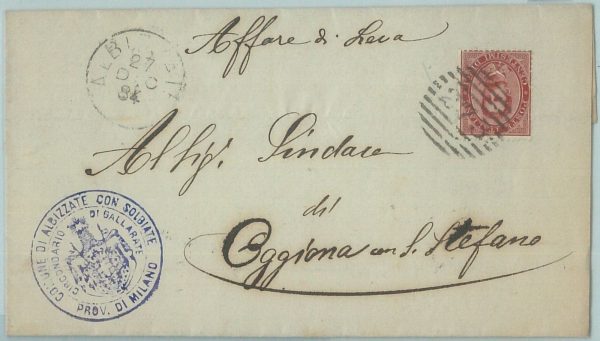 Affare di Leva
ALBIZZATE
27
DIC
84
All'Ill. Sindaco
di
Oggiona con S. Stefano
COMUNE DI ALBIZZATE CON SOLBIATE
CIRCONDARIO DI GALLARATE
PROV. DI MILANO